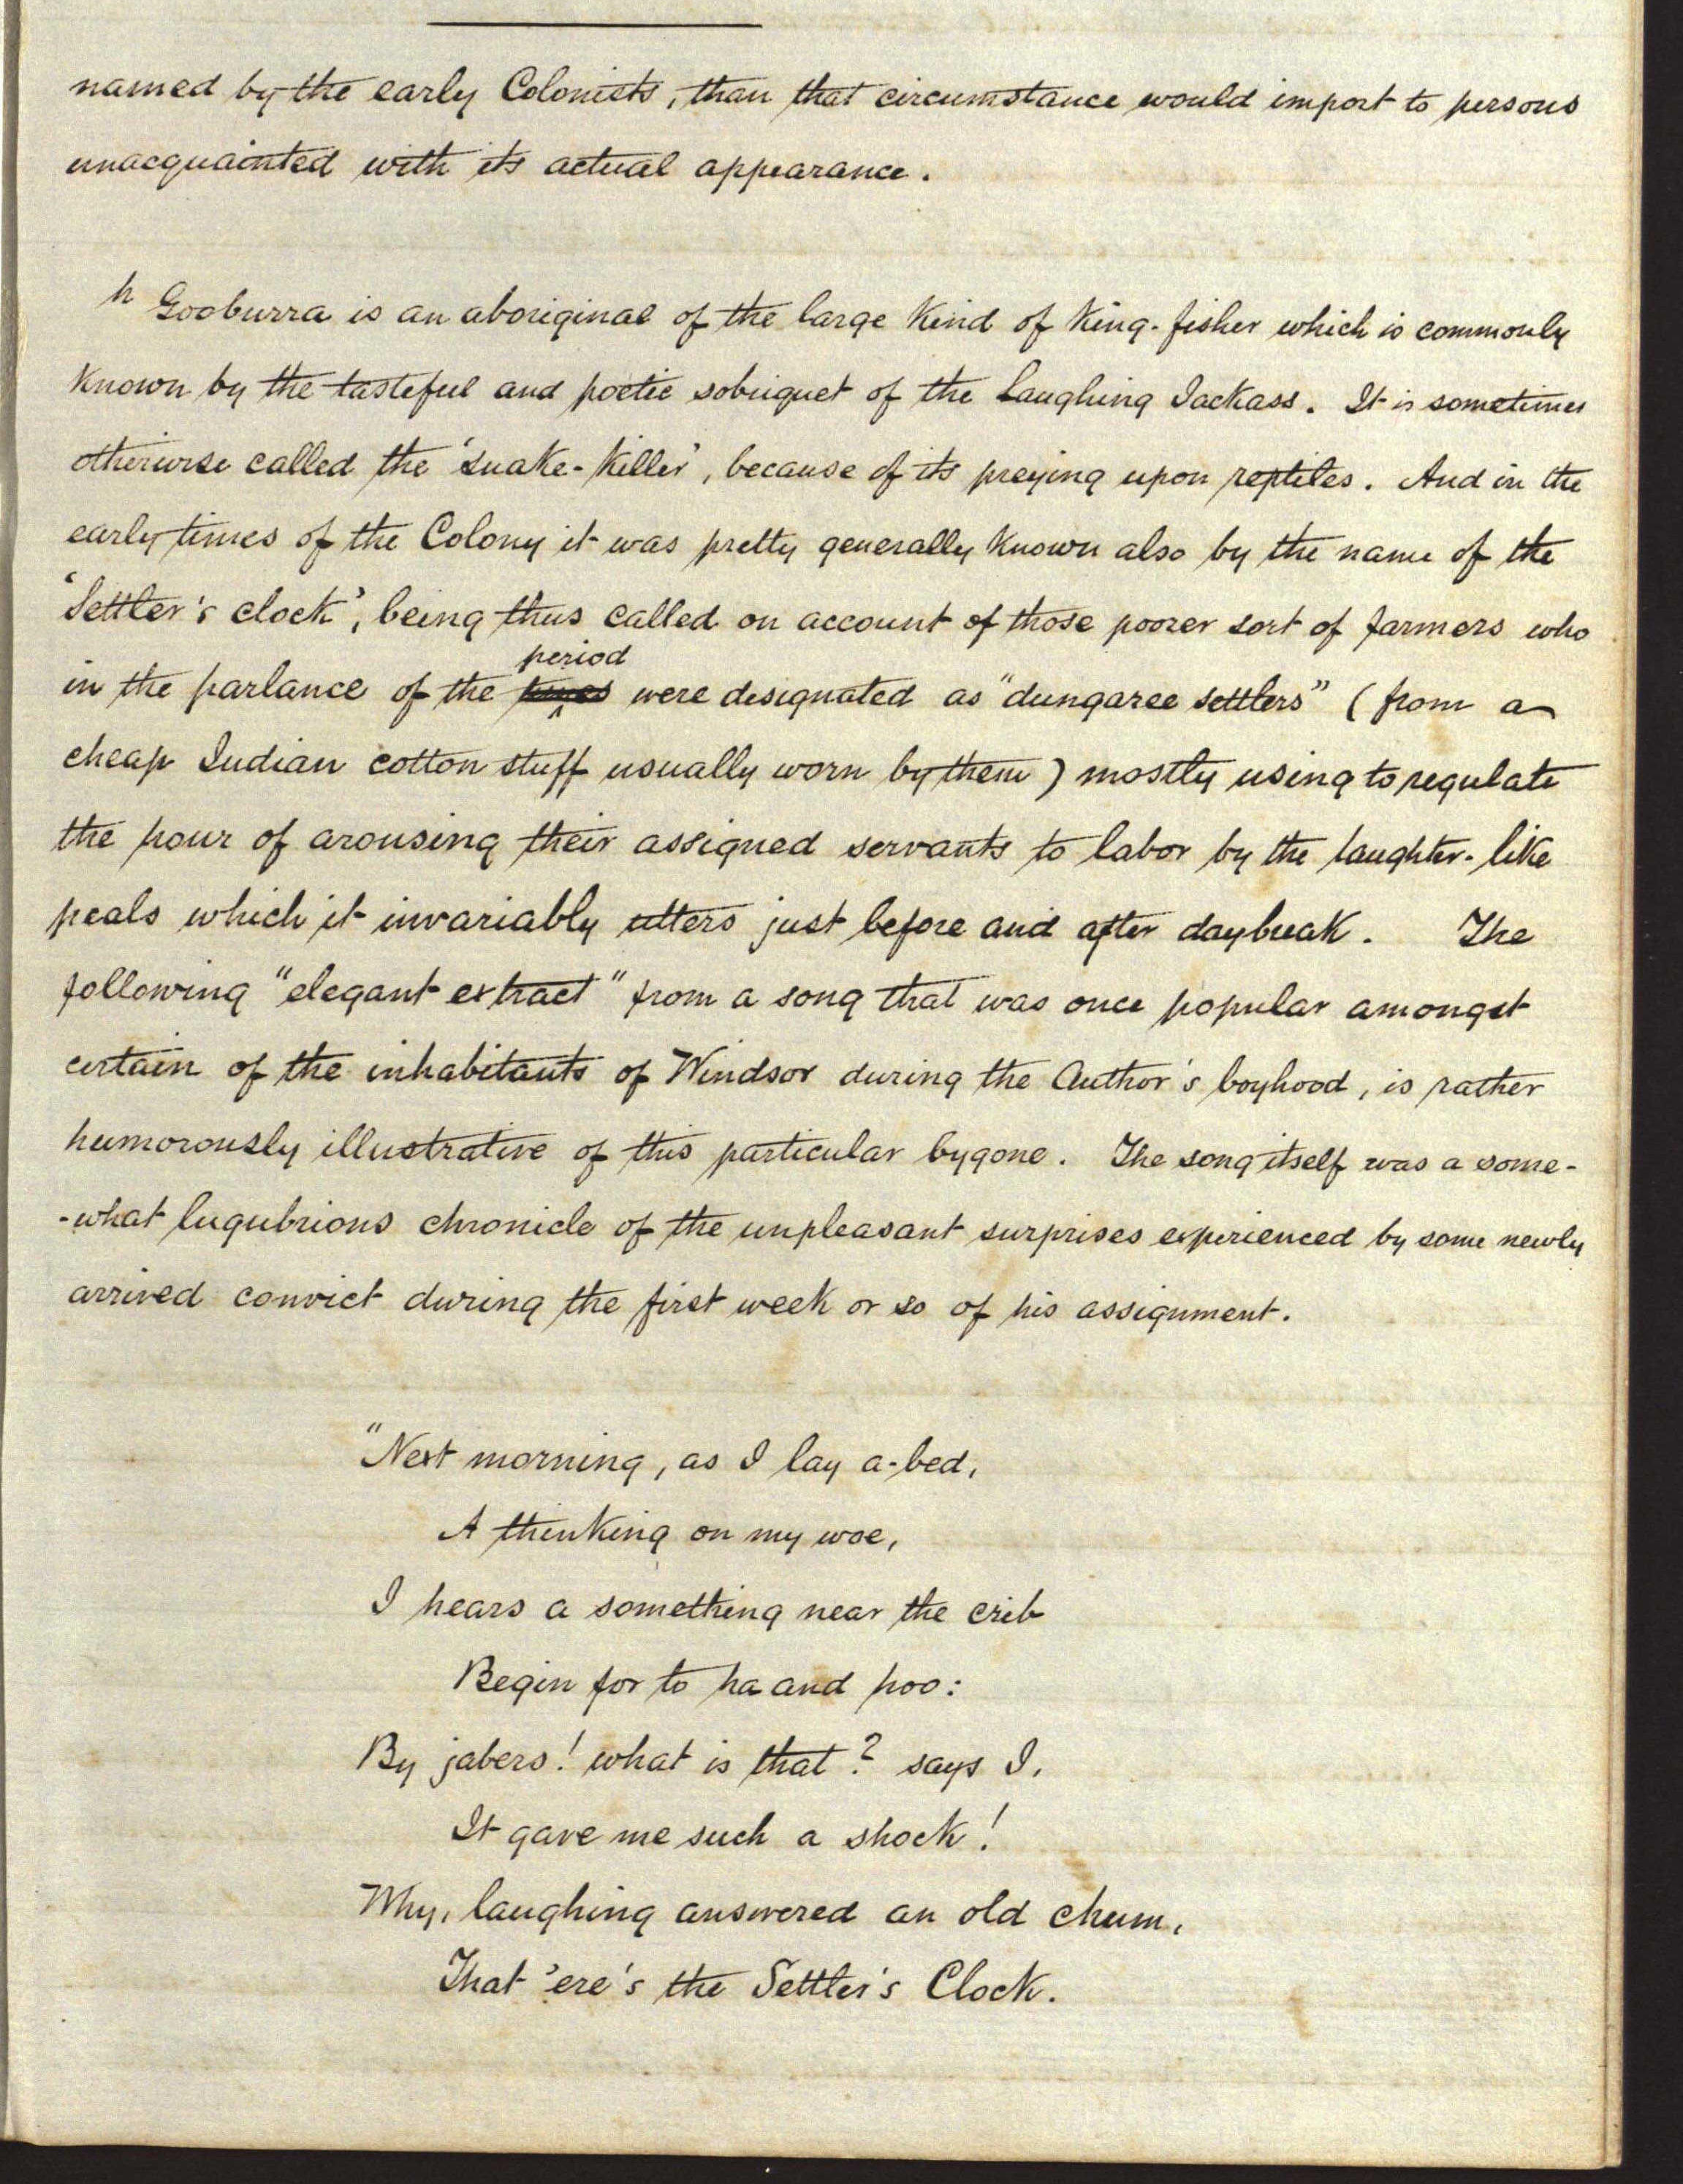 named by the early Colonists, than that circumstance would import to persons
unacquainted with its actual appearance.
h Gooburra is an aboriginal of the large kind of King-fisher which is commonly
known by the tasteful and poetic sobriquet of the Laughing Jackass. It is sometimes
otherwise called the 'snake-killer', because of its preying upon reptiles. And in the
early times of the Colony it was pretty generally known also by the name of the
'Settler's clock', being thus called on account of those poorer sort of farmers who
period
in the parlance of the times were designated as "dungaree settlers" (from a
cheap Indian cotton stuff usually worn by them) mostly using to regulate
the hour of arousing their assigned servants to labor by the laughter-like
peals which it invariably utters just before and after daybreak. The
following "elegant extract" from a song that was once popular amongst
certain of the inhabitants of Windsor during the Author's boyhood, is rather
humorously illustrative of this particular bygone. The song itself was a some-
-what lugubrious chronicle of the unpleasant surprises experienced by some newly
arrived convict during the first week or so of his assignment.
"Next morning, as I lay a-bed,
A thinking on my woe,
I hears a something near the crib
Begin for to ha and hoo:
By jabers! what is that? says I,
It gave me such a shock!
Why, laughing answered an old chum,
That 'ere's the Settler's Clock.